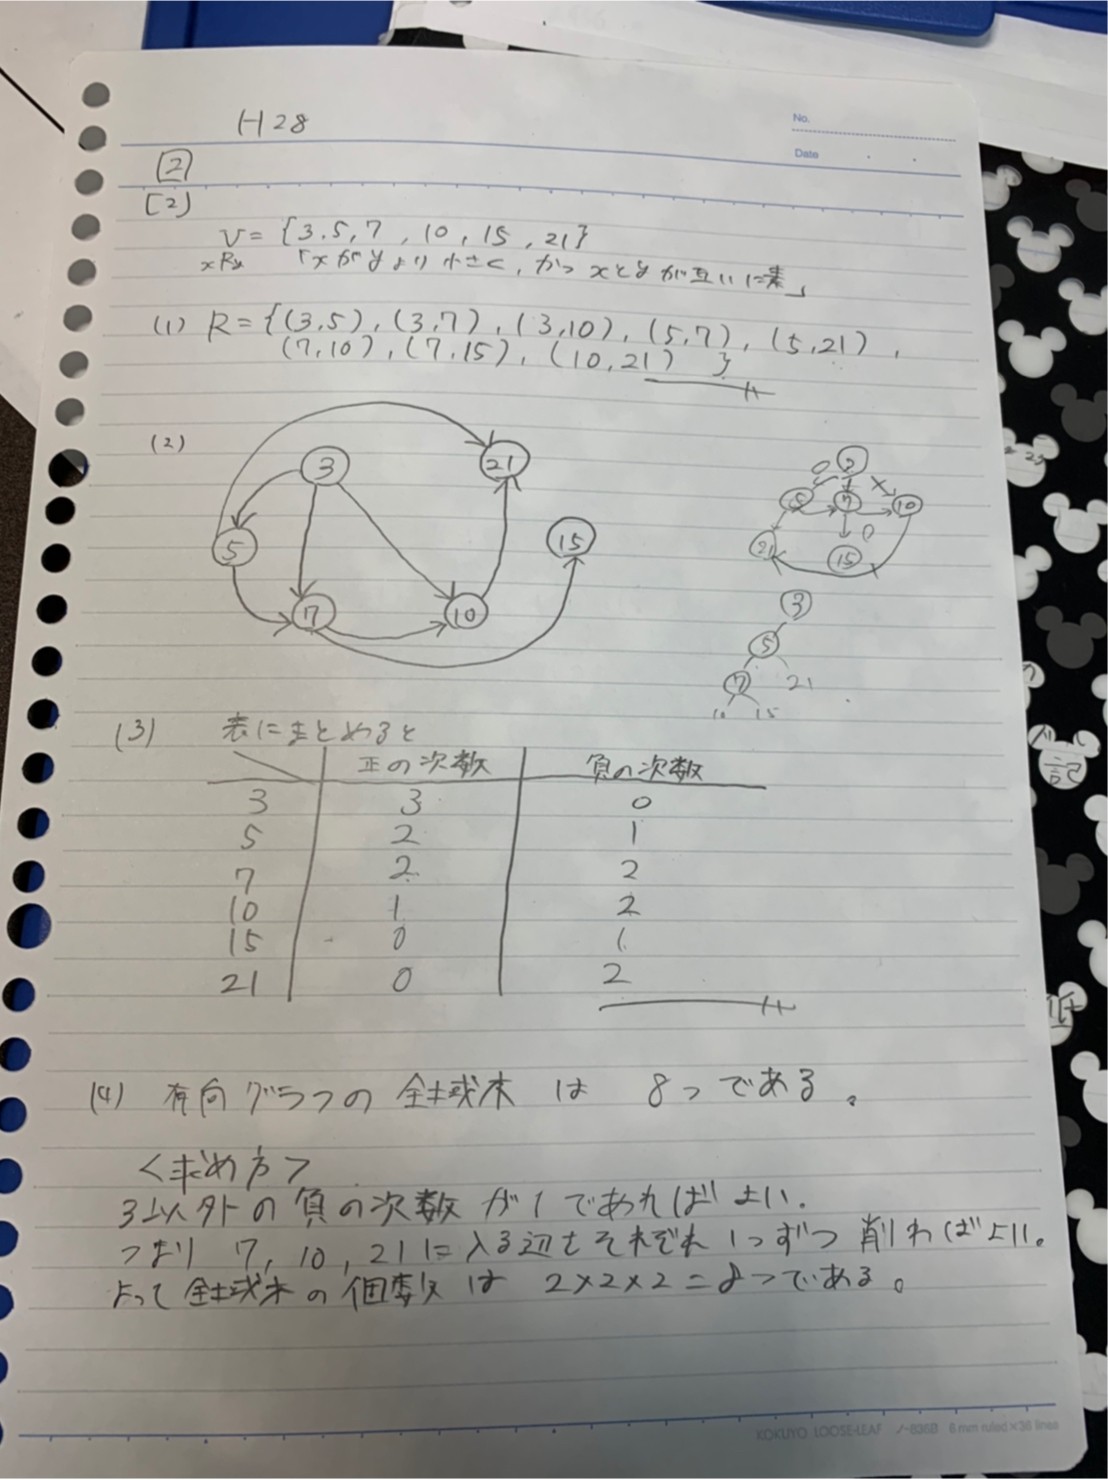 H28
No.
Date
[2]
[2]
V = {3.5, 7, 10, 15, 21}
xRy 「xがyより小さく, かつ xとyが互いに素」
(1) R = {(3,5), (3,7), (3,10), (5,7), (5,21),
(7,10), (7,15), (10,21) }
(2)
3
21
5
15
7
10
5
7
10
21
15
3
5
7
21
15
(3) 表にまとめると
正の次数 負の次数
3 3 0
5 2 1
7 2 2
10 1 2
15 0 1
21 0 2
(4) 有向グラフの全域木は 8つである。
<求め方>
3以外の負の次数が1であればよい.
つまり 7, 10, 21に入る辺をそれぞれ1つずつ削ればよい。
よって全域木の個数は 2×2×2=8つである。
記
低
KOKUYO LOOSE-LEAF ノ-836B 8 mm ruled×36 lines